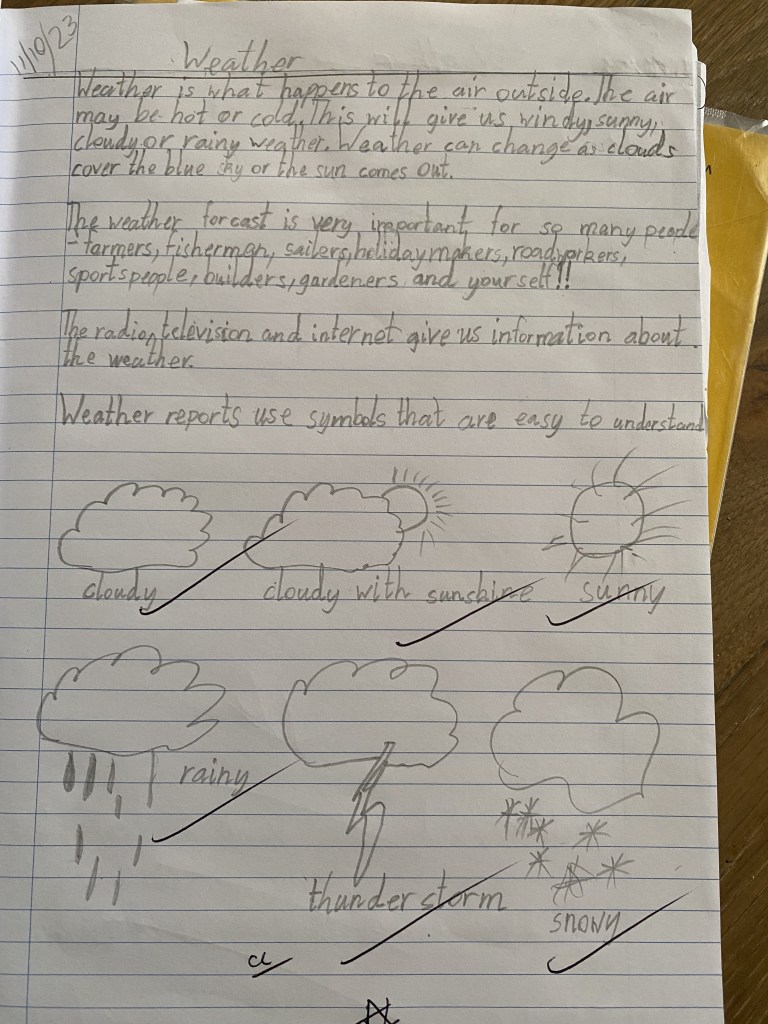 11/10/23
Weather
Weather is what happens to the air outside. The air
may be hot or cold. This will give us windy, sunny,
cloudy or rainy weather. Weather can change as clouds
cover the blue sky or the sun comes out.
The weather forcast is very important for so many people
- farmers, fishermen, sailers, holidaymakers, roadworkers,
sportspeople, builders, gardeners and yourself!!
The radio, television and internet give us information about
the weather.
Weather reports use symbols that are easy to understand
cloudy cloudy with sunshine sunny
rainy
thunder storm
snowy